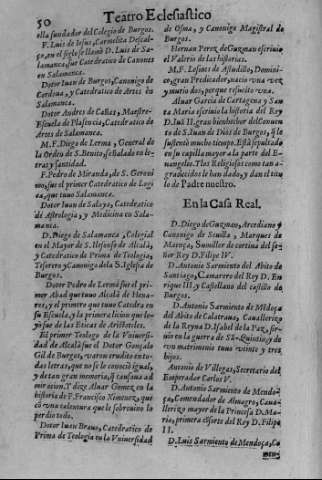 50
Teatro Eclesiastico
ella fundador del Colegio de Burgos.
F. Luis de Iesus, Carmelita Descal-
ço, en el siglo se llamò D. Luis de Sa-
lamanca, fue Catedratico de Canones
en Salamanca.
Dotor Iuan de Burgos, Canonigo de
Cordoua, y Catedratico de Artes en
Salamanca.
Dotor Andres de Cañas, Maestre-
Escuela de Plasencia, Catedratico de
Artes de Salamanca.
M.F. Diego de Lerma, General de
la Orden de S. Benito, señalado en le-
tras y santidad.
F. Pedro de Miranda, de S. Geroni-
mo, fue el primer Catedratico de Logi
ca, que tuuo Salamanca.
Dotor Iuan de Salaya, Catedratico
de Astrologia, y Medicina en Sala-
manca.
D. Diego de Salamanca, Colegial
en el Mayor de S. Ilefonso de Alcalà,
y Catedratico de Prima de Teologia,
Tesorero y Canonigo de la S. Iglesia de
Burgos.
Dotor Pedro de Lerma fue el pri-
mer Abad que tuuo Alcalà de Hena-
res, y el primero que tuuo Catedra en
su Escuela, y la primera licion que le-
yò fue de las Eticas de Aristoteles.
El primer Teologo de la Vniuersi-
dad de Alcalà fue el Dotor Gonçalo
Gil de Burgos, varon erudito en to-
das letras, que no se le conociò igual,
y de tan gran memoria, q̃ causaua ad
miracion. Y dize Aluar Gomez en la
historia de F. Francisco Ximenez, que
cõ vna calentura que le sobreuino lo
perdio todo.
Dotor Iuan Brauo, Catedratico de
Prima de Teologia en la Vniuersidad
de Osma, y Canonigo Magistral de
Burgos.
Hernan Perez de Guzman escriuio
el Valerio de las historias.
M.F. Lesmes de Astudillo, Domini-
co, gran Predicador, nacio vna vez
y murio dos, porque resucitò vna.
Aluar Garcia de Cartagena y San
ta Maria escriuio la historia del Rey
D. Iuã II. gran bienhechor del Conuen
to de S. Iuan de Dios de Burgos, q̃ lo
sustentò mucho tiempo. Està sepultado
en su capilla mayor a la parte del E-
uangelio. Los Religiosos como tan a-
gradecidos le han dado, y dan el titu-
lo de Padre nuestro.
En la Casa Real.
D. Diego de Guzman, Arcediano y
Canonigo de Seuilla, Marques de
Mayoça, Sumiller de cortina del se-
ñor Rey D. Filipe IV.
D. Antonio Sarmiento del Abito de
Santiago, Camarero del Rey D. En-
rique III. y Castellano del castillo de
Burgos.
D. Antonio Sarmiento de Mẽdoça
del Abito de Calatraua, Cauallerizo
de la Reyna D. Isabel de la Paz, sir-
uiò en la guerra de Sã-Quintin, y de
vn matrimonio tuuo veinte y tres
hijos.
Antonio de Villegas, Secretario del
Emperador Carlos V.
D. Antonio Sarmiento de Mendo-
ça, Comendador de Almagro, Caua-
llerizo mayor de la Princesa D. Ma-
ria, primera esposa del Rey D. Filipe
II.
D. Luis Sarmiento de Mendoça, Co